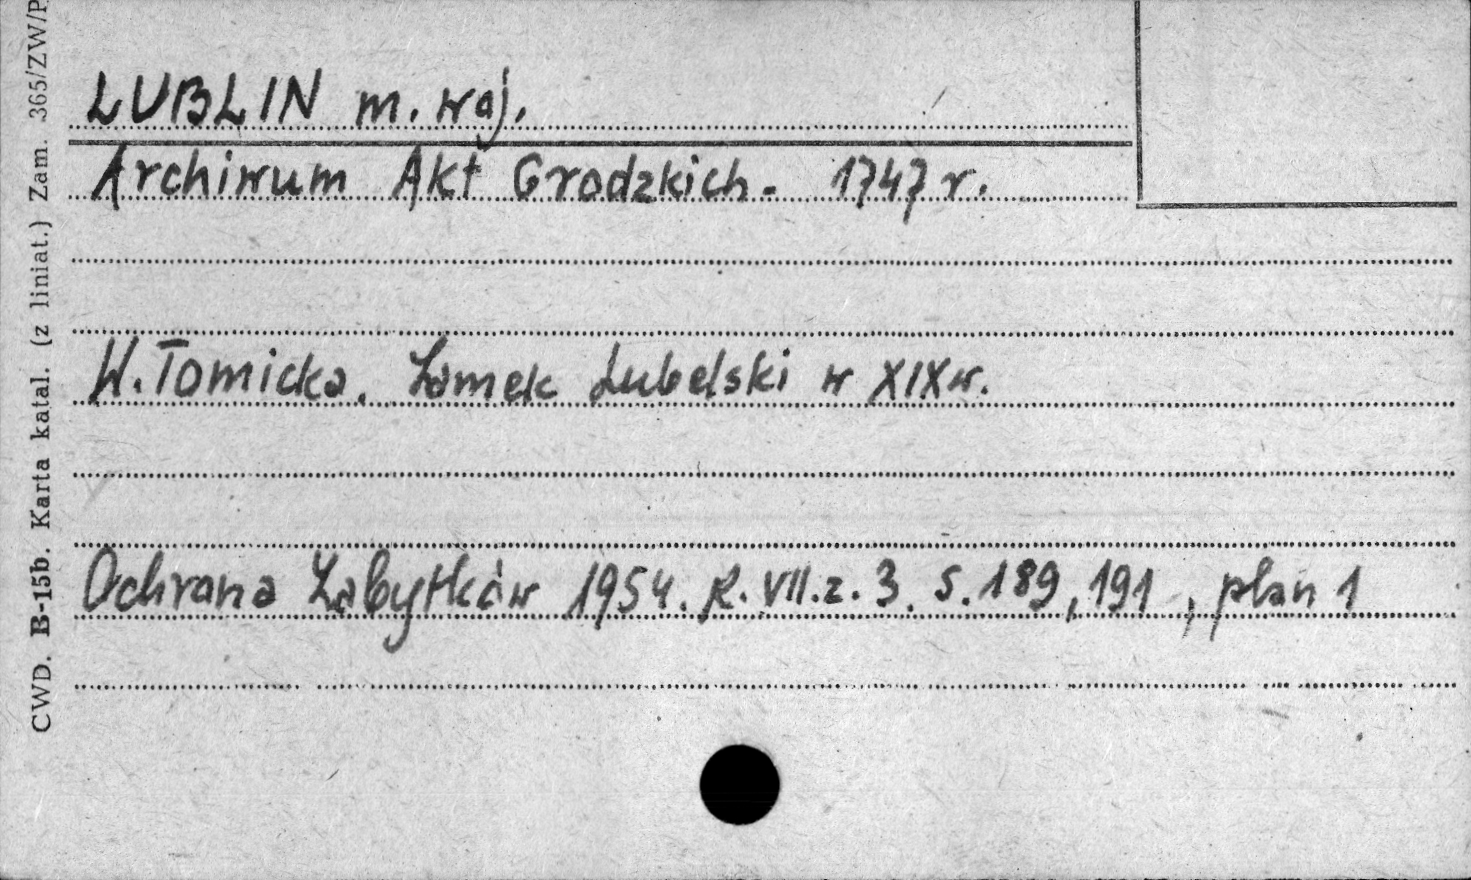 LUBLIN m. woj.
Archiwum Akt Grodzkich. 1747 r.
W. Tomicka. Zamek Lubelski w XIX w.
Ochrona Zabytków 1954. R. VII. z. 3. s. 189, 191, plan 1
CWD. B-15b. Karta katal. (z liniat.) Zam. 365/ZW/P